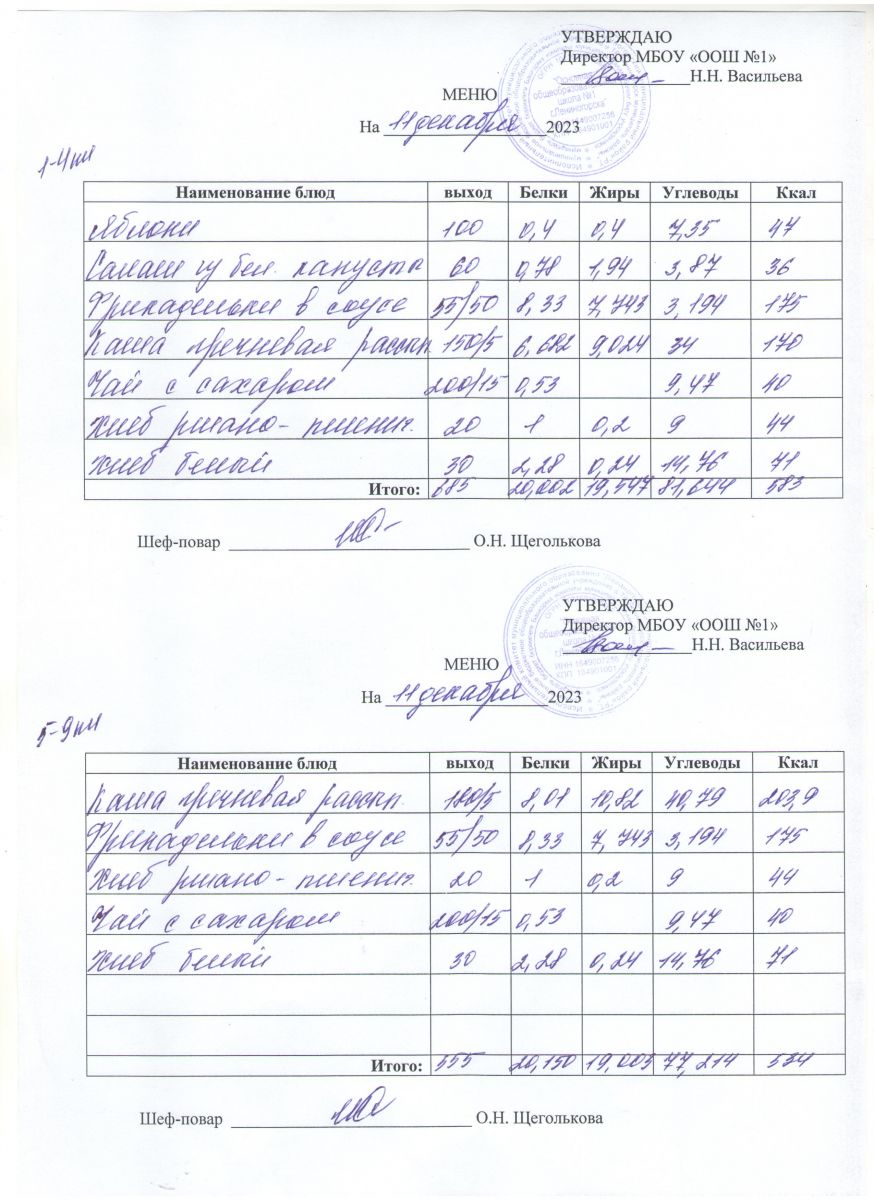 УТВЕРЖДАЮ
Директор МБОУ «ООШ №1»
Н.Н. Васильева
МЕНЮ
На 11 декабря 2023
1-4 кл
Наименование блюд выход Белки Жиры Углеводы Ккал
Яблоки 100 0,4 0,4 7,35 47
Салат из бел. капусты 60 0,78 1,94 3,87 36
Фрикадельки в соусе 55/50 8,33 7,743 3,194 175
Каша гречневая рассып. 150/5 6,682 9,024 34 170
Чай с сахаром 200/15 0,53 9,47 40
Хлеб ржано-пшенич. 20 1 0,2 9 44
Хлеб белый 30 2,28 0,24 14,76 71
Итого: 685 20,002 19,547 81,644 583
Шеф-повар О.Н. Щеголькова
УТВЕРЖДАЮ
Директор МБОУ «ООШ №1»
Н.Н. Васильева
ИНН 1649007256
КПП 164901001
МЕНЮ
На 11 декабря 2023
5-9 кл
Наименование блюд выход Белки Жиры Углеводы Ккал
Каша гречневая рассып. 180/5 8,01 10,82 40,79 203,9
Фрикадельки в соусе 55/50 8,33 7,743 3,194 175
Хлеб ржано-пшенич. 20 1 0,2 9 44
Чай с сахаром 200/15 0,53 9,47 40
Хлеб белый 30 2,28 0,24 14,76 71
Итого: 555 20,150 19,003 77,214 534
Шеф-повар О.Н. Щеголькова